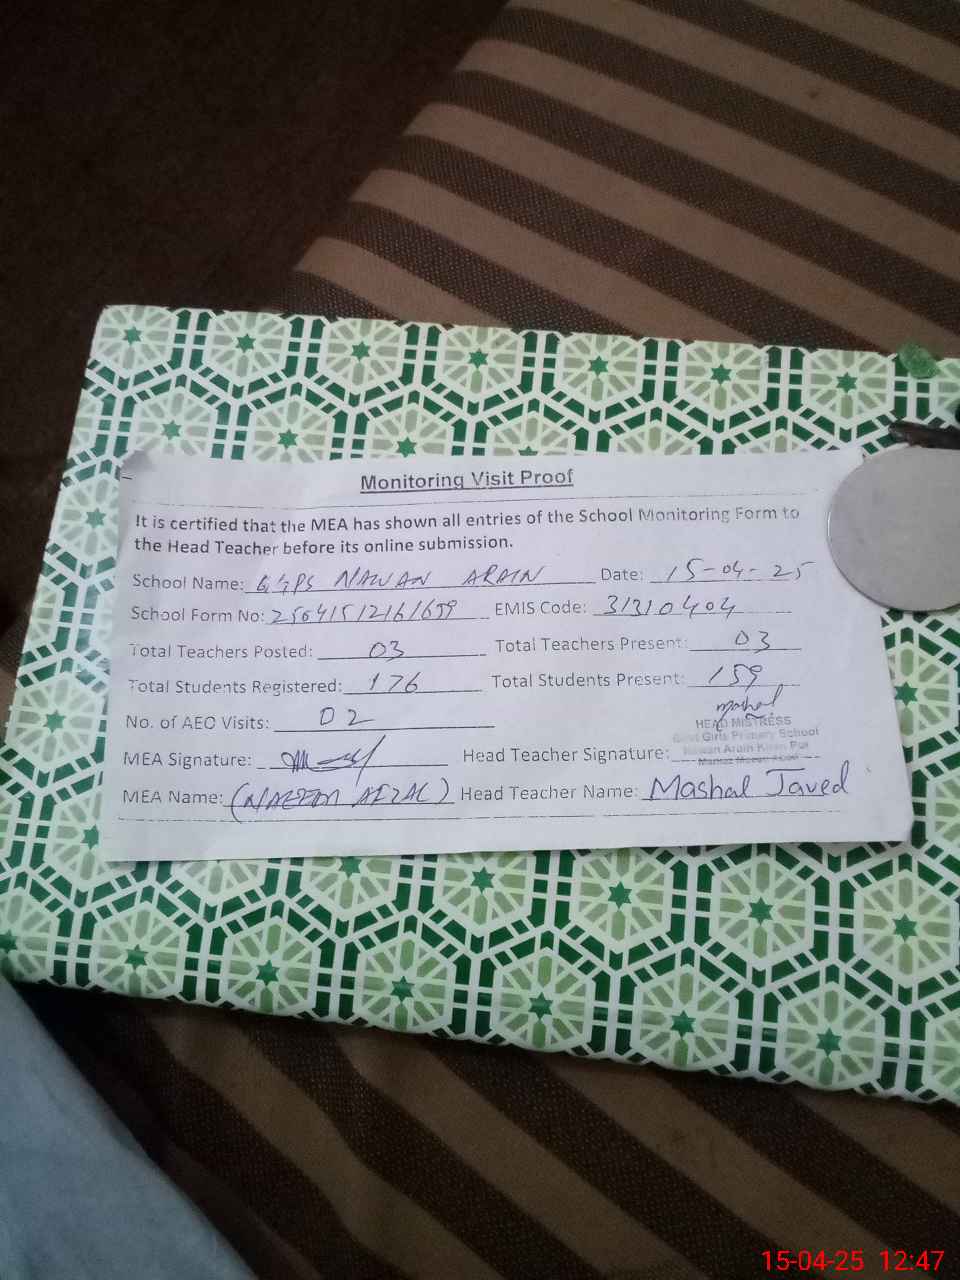 Monitoring Visit Proof
It is certified that the MEA has shown all entries of the School Monitoring Form to
the Head Teacher before its online submission.
School Name: GGPS NAWAN ARAIN Date: 15-04-25
School Form No: 25641512161659 EMIS Code: 31310404
Total Teachers Posted: 03 Total Teachers Present: 03
Total Students Registered: 176 Total Students Present: 159
No. of AEO Visits: 02
mashal
HEAD MISTRESS
Govt Girls Primary School
Nawan Arain Pur
MEA Signature: Head Teacher Signature:
MEA Name: (NAEEM AFZAL) Head Teacher Name: Mashal Javed
15-04-25 12:47